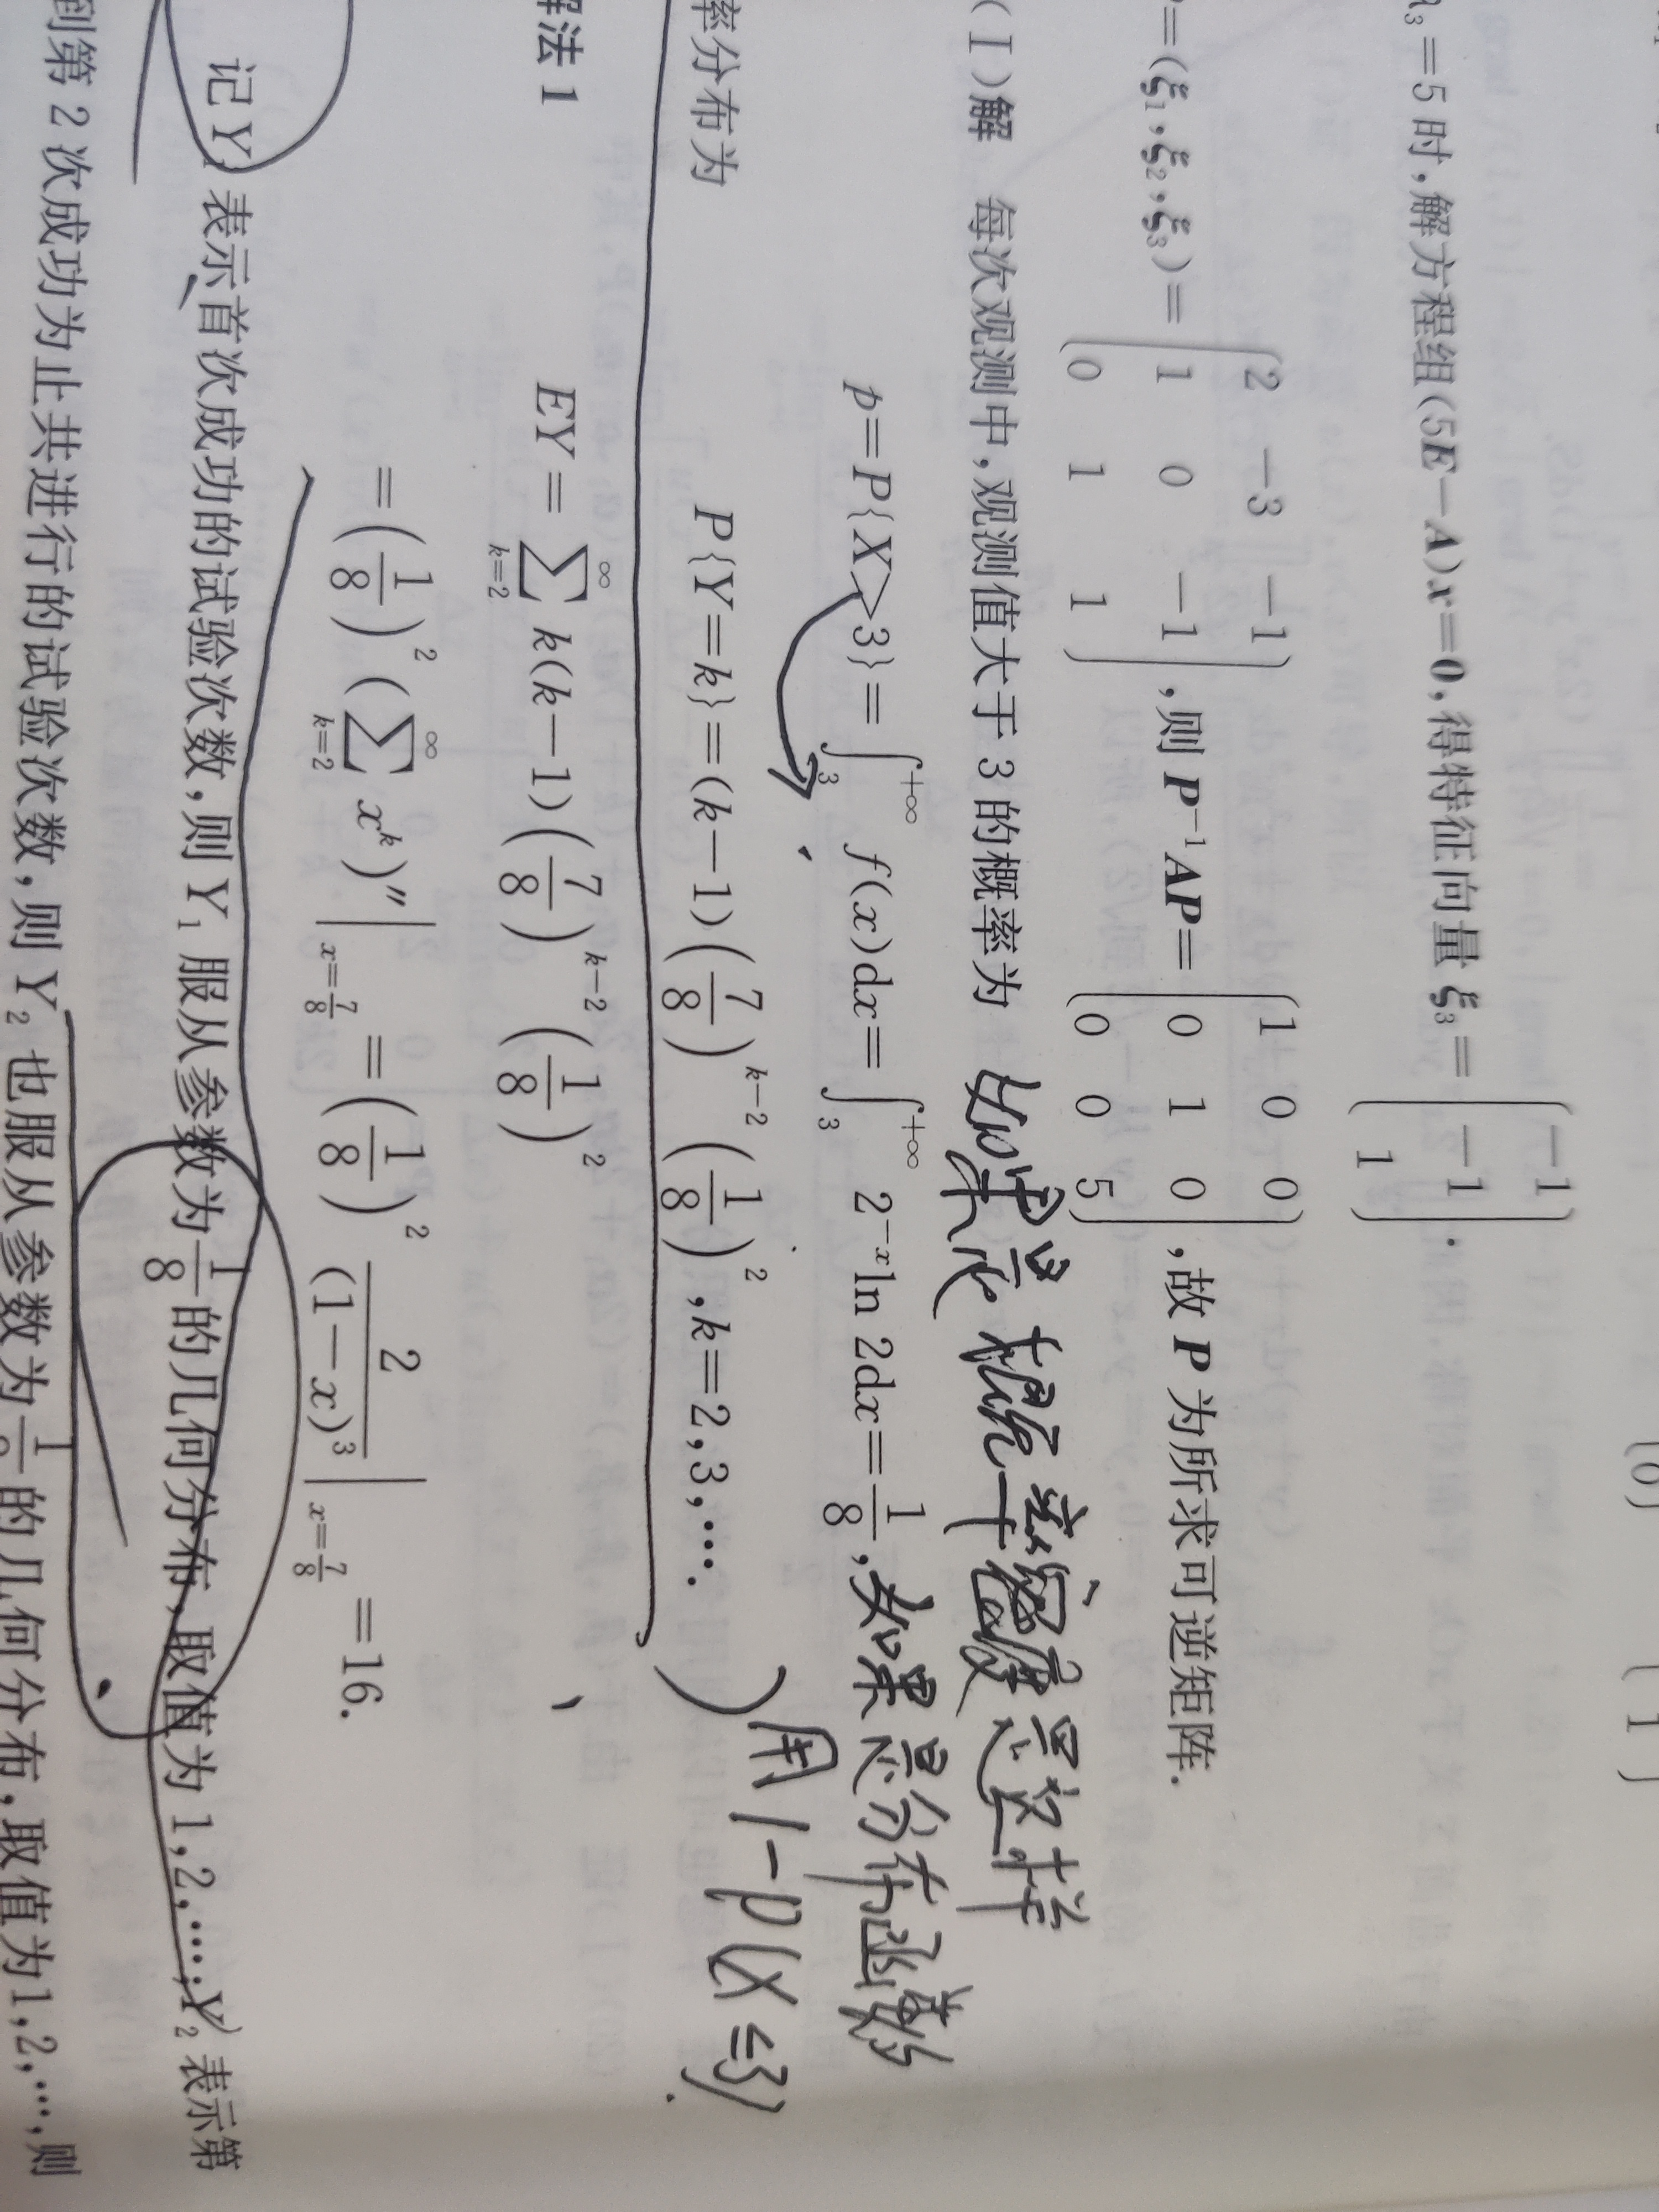 λ₃=5时,解方程组(5E-A)x=0,得特征向量ξ₃=(-1 -1 1).
P=(ξ₁,ξ₂,ξ₃)=(2 -3 -1; 1 0 -1; 0 1 1),则P⁻¹AP=(1 0 0; 0 1 0; 0 0 5),故P为所求可逆矩阵.
(Ⅰ)解 每次观测中,观测值大于3的概率为 如果是概率密度是这样
p=P{X>3}=∫₃^{+∞} f(x)dx=∫₃^{+∞} 2^{-x}ln 2dx=1/8,如果是分布函数
用1-P(X≤3)
率分布为
P{Y=k}=(k-1)(7/8)^{k-2}(1/8)²,k=2,3,….
解法1
EY=∑_{k=2}^{∞} k(k-1)(7/8)^{k-2}(1/8)²
=(1/8)²(∑_{k=2}^{∞} x^k)″|_{x=7/8}=(1/8)² 2/(1-x)³|_{x=7/8}=16.
记Y₁表示首次成功的试验次数,则Y₁服从参数为1/8的几何分布,取值为1,2,…;Y₂表示第
到第2次成功为止共进行的试验次数,则Y₂也服从参数为1/8的几何分布,取值为1,2,…,则